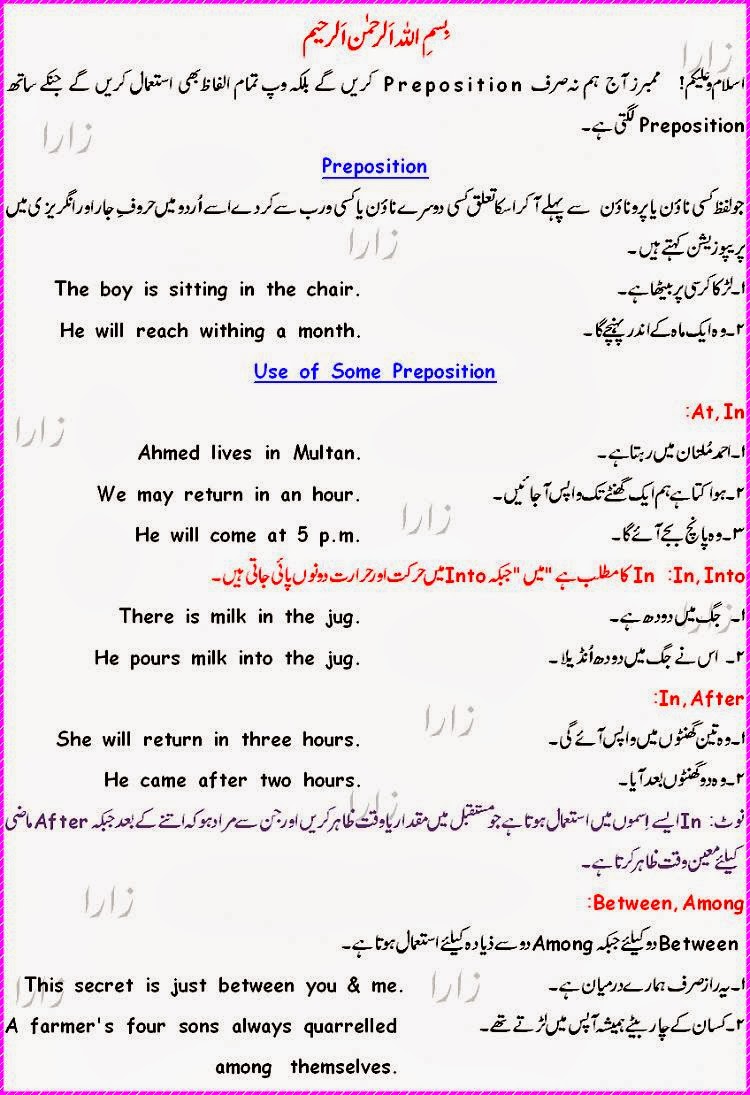 بِسمِ اللہ الرحمٰن الرحیم
اسلام وعلیکم! ممبرز آج ہم نہ صرف Preposition کریں گے بلکہ وپ تمام الفاظ بھی استعمال کریں گے جنکے ساتھ
Preposition لگتی ہے۔
Preposition
جو لفظ کسی ناؤن یا پروناؤن سے پہلے آ کر اسکا تعلق کسی دوسرے ناؤن یا کسی ورب سے کردے اسے اُردو میں حروفِ جار اور انگریزی میں
پریپوزیشن کہتے ہیں۔
۱۔لڑکا کرسی پر بیٹھا ہے۔ The boy is sitting in the chair.
۲۔وہ ایک ماہ کے اندر پہنچے گا۔ He will reach withing a month.
Use of Some Preposition
At, In:
۱۔احمد مُلتان میں رہتا ہے۔ Ahmed lives in Multan.
۲۔ہوا کتا ہے ہم ایک گھنٹے تک واپس آ جائیں۔ We may return in an hour.
۳۔وہ پانچ بجے آئے گا۔ He will come at 5 p.m.
In, Into: In کا مطلب ہے "میں" جبکہ Into میں حرکت اور حرارت دونوں پائی جاتی ہیں۔
۱۔ جگ میں دودھ ہے۔ There is milk in the jug.
۲۔ اس نے جگ میں دودھ اُنڈیلا۔ He pours milk into the jug.
In, After:
۱۔وہ تین گھنٹوں میں واپس آئے گی۔ She will return in three hours.
۲۔وہ دو گھنٹوں بعد آیا۔ He came after two hours.
نوٹ: In ایسے اِسموں میں استعمال ہوتا ہے جو مستقبل میں مقدار یا وقت ظاہر کریں اور جن سے مراد ہو کہ اتنے کے بعد جبکہ After ماضی
کیلئے معین وقت ظاہر کرتا ہے۔
Between, Among:
Between دو کیلئے جبکہ Among دو سے ذیادہ کیلئے استعمال ہوتا ہے۔
۱۔یہ راز صرف ہمارے درمیان ہے۔ This secret is just between you & me.
۲۔کسان کے چار بیٹے ہمیشہ آپس میں لڑتے تھے۔ A farmer's four sons always quarrelled
among themselves.
زارا
زارا
زارا
زارا
زارا
زارا
زارا
زارا
زارا
زارا
زارا